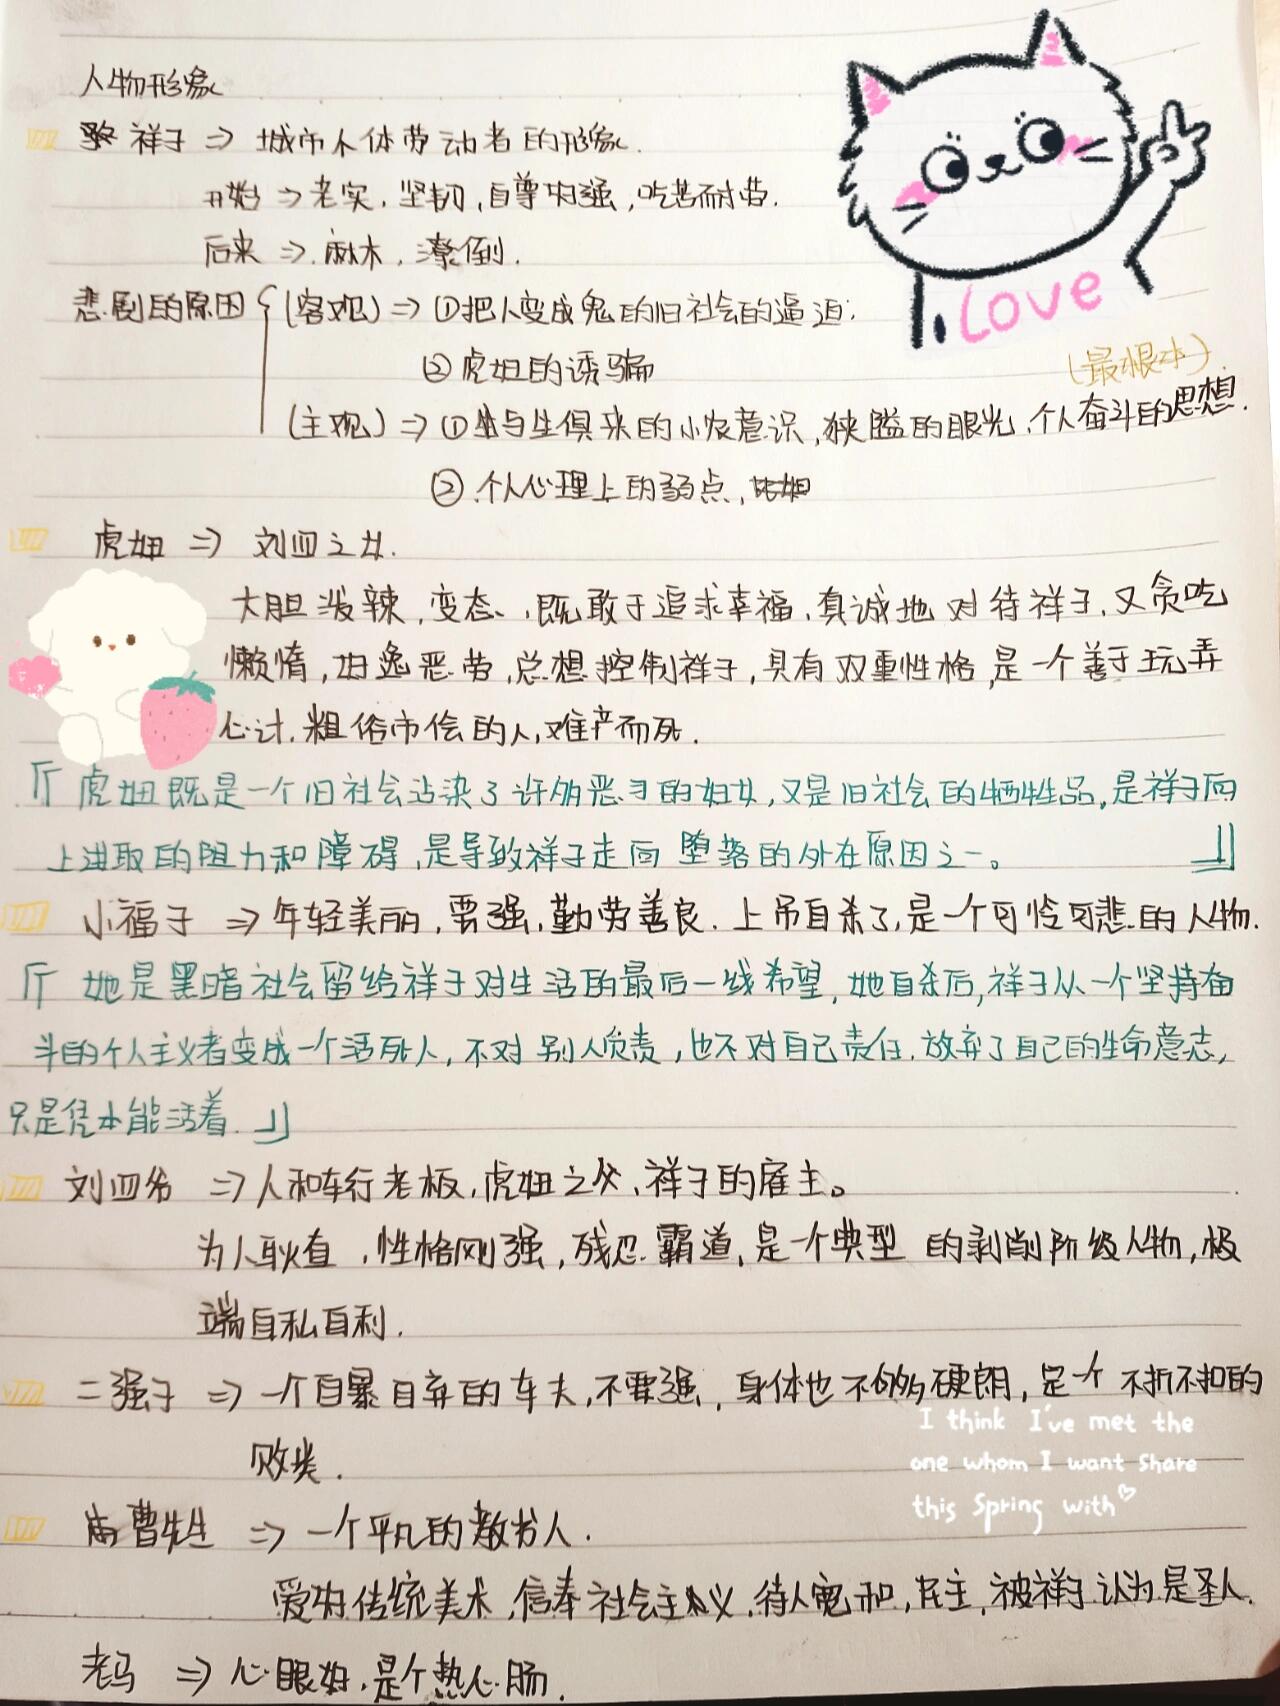 人物形象
祥子 => 城市个体劳动者的形象.
开始 => 老实, 坚韧, 自尊好强, 吃苦耐劳.
后来 => 麻木, 潦倒.
悲剧的原因 { (客观) => ①把人变成鬼的旧社会的逼迫;
②虎妞的诱骗
(最根本)
(主观) => ①与生俱来的小农意识, 狭隘的眼光, 个人奋斗的思想.
②个人心理上的弱点,
虎妞 => 刘四之女.
大胆泼辣, 变态, 既敢于追求幸福, 真诚地对待祥子, 又贪吃
懒惰, 好逸恶劳, 总想控制祥子, 具有双重性格, 是一个善于玩弄
心计, 粗俗市侩的人, 难产而死.
『虎妞既是一个旧社会沾染了许多恶习的妇女, 又是旧社会的牺牲品, 是祥子向
上进取的阻力和障碍, 是导致祥子走向堕落的外在原因之一。』
小福子 => 年轻美丽, 要强, 勤劳善良. 上吊自杀了, 是一个可怜可悲的人物.
『她是黑暗社会留给祥子对生活的最后一线希望, 她自杀后, 祥子从一个坚持奋
斗的个人主义者变成一个活死人, 不对别人负责, 也不对自己责任, 放弃了自己的生命意志,
只是凭本能活着.』
刘四爷 => 人和车行老板, 虎妞之父, 祥子的雇主。
为人耿直, 性格刚强, 残忍霸道, 是一个典型的剥削阶级人物, 极
端自私自利.
二强子 => 一个自暴自弃的车夫, 不要强, 身体也不够硬朗, 是个不折不扣的
败类.
I think I've met the
one whom I want share
this Spring with♡
曹先生 => 一个平凡的教书人.
爱好传统美术, 信奉社会主义, 待人宽和, 民主, 被祥子认为是圣人.
老马 => 心眼好, 是个热心肠.
Love